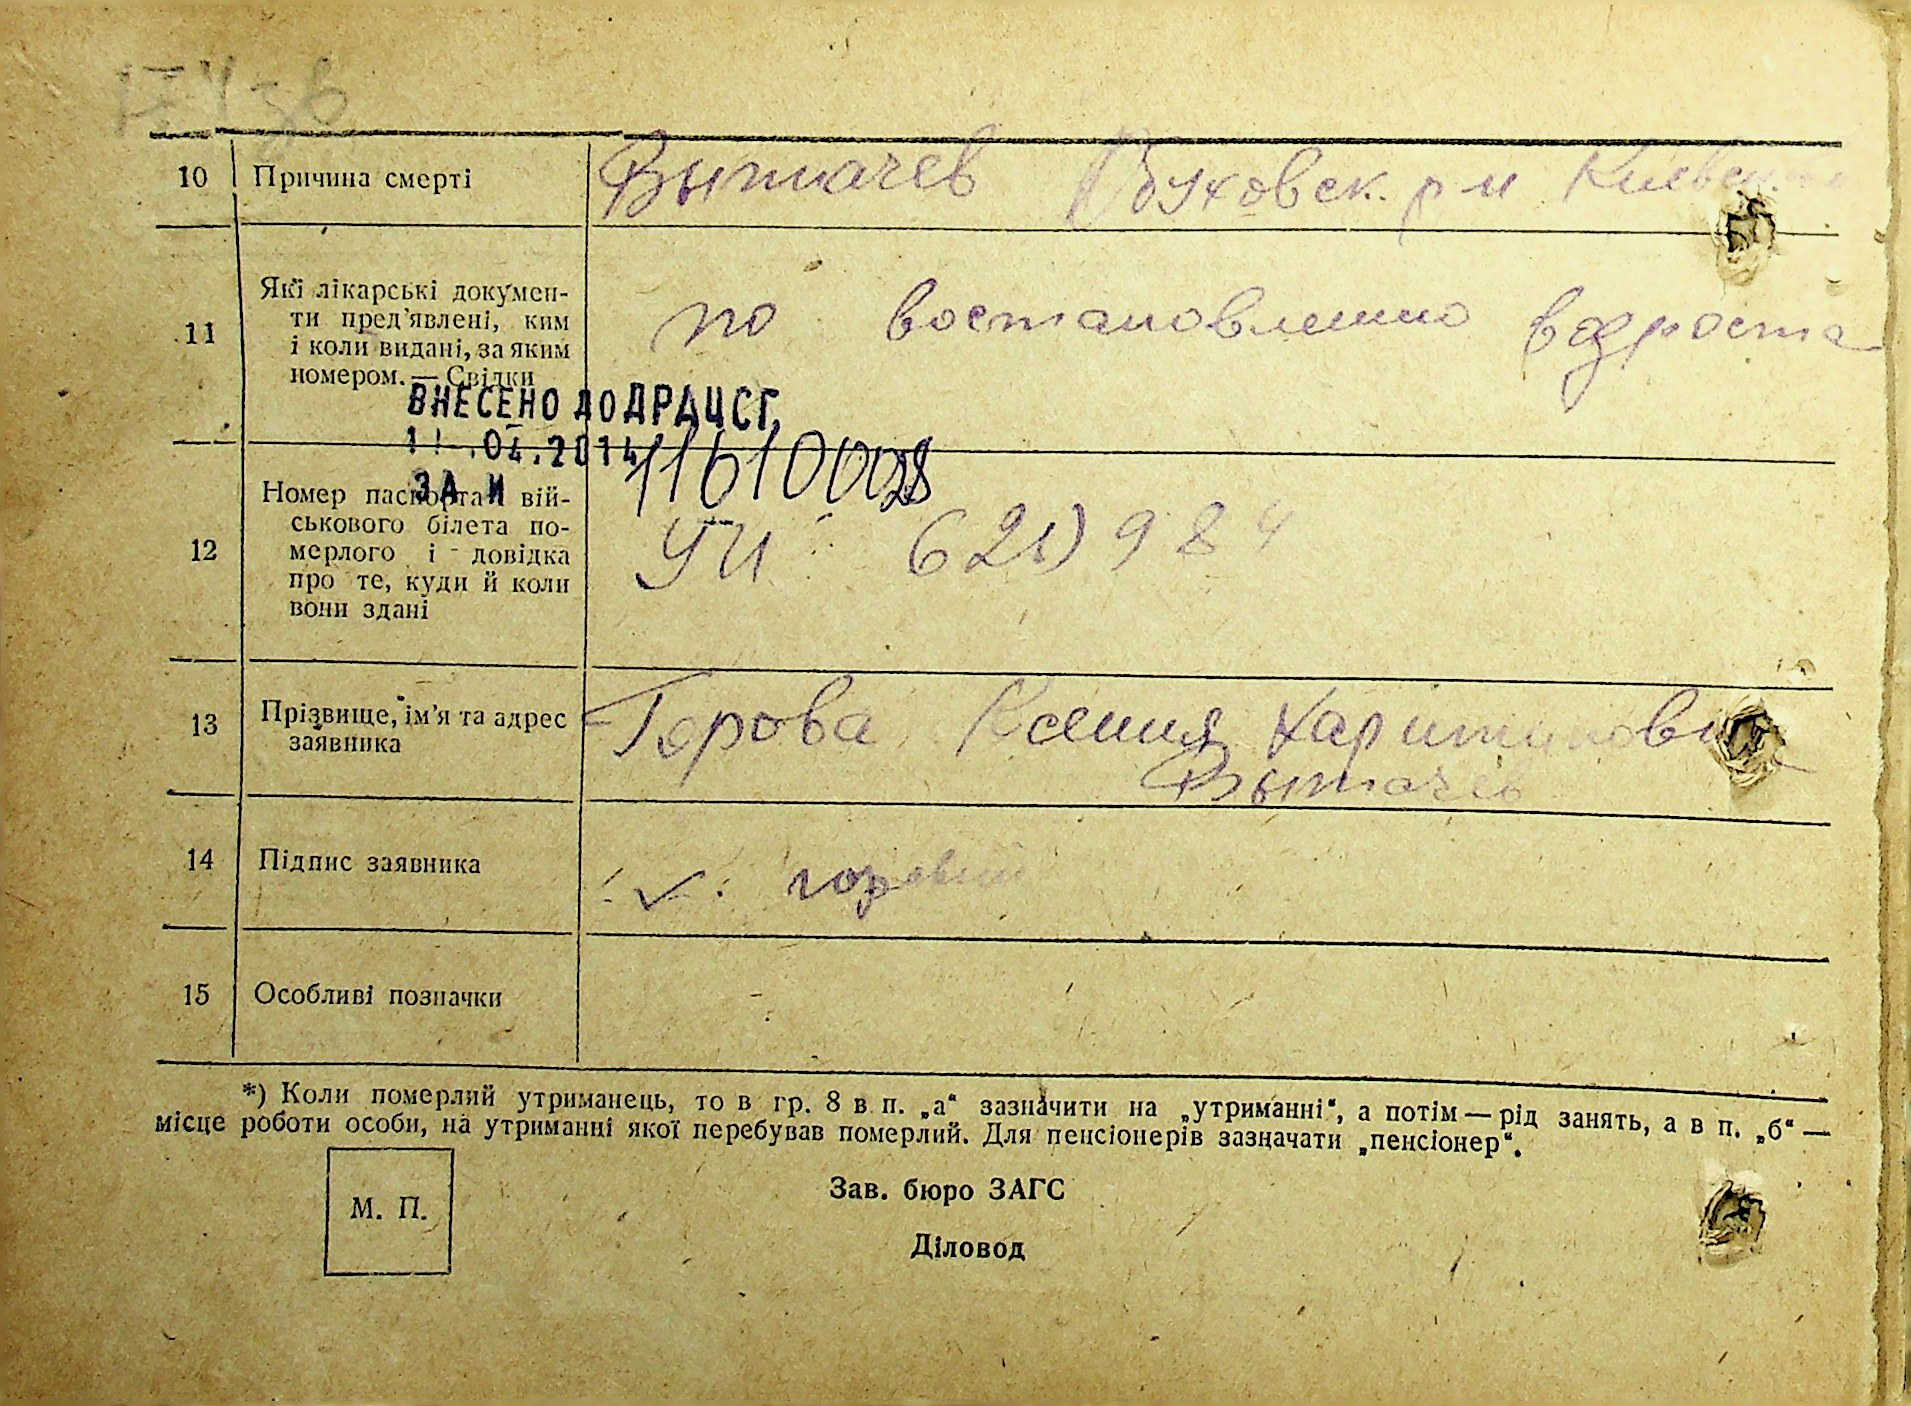 10 Причина смерті Вытачев Обуховск. р-н Киевской
11 Які лікарські докумен-
ти пред'явлені, ким
і коли видані, за яким
номером. — Свідки
по востановлению возроста
ВНЕСЕНО ДО ДРАЦСГ
.04.2014
ЗА №
12 Номер паспорта і вій-
ськового білета по-
мерлого і довідка
про те, куди й коли
вони здані
13 Прізвище, ім'я та адрес
заявника
Ксения Харитоновна
Вытачев
14 Підпис заявника
15 Особливі позначки
*) Коли померлий утриманець, то в гр. 8 в п. „а“ зазначити на „утриманні“, а потім — рід занять, а в п. „б“ —
місце роботи особи, на утриманні якої перебував померлий. Для пенсіонерів зазначати „пенсіонер“.
М. П.
Зав. бюро ЗАГС
Діловод